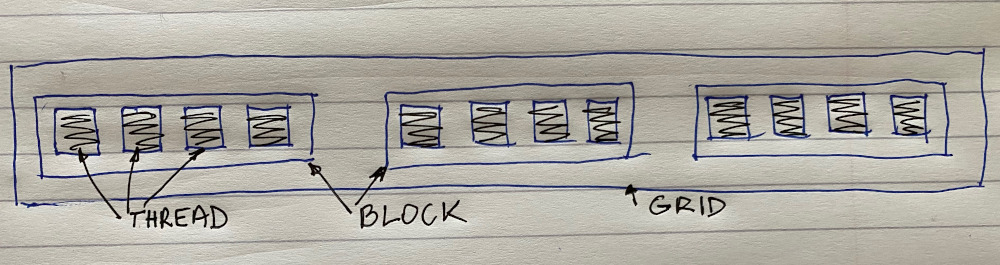 THREAD
BLOCK
GRID